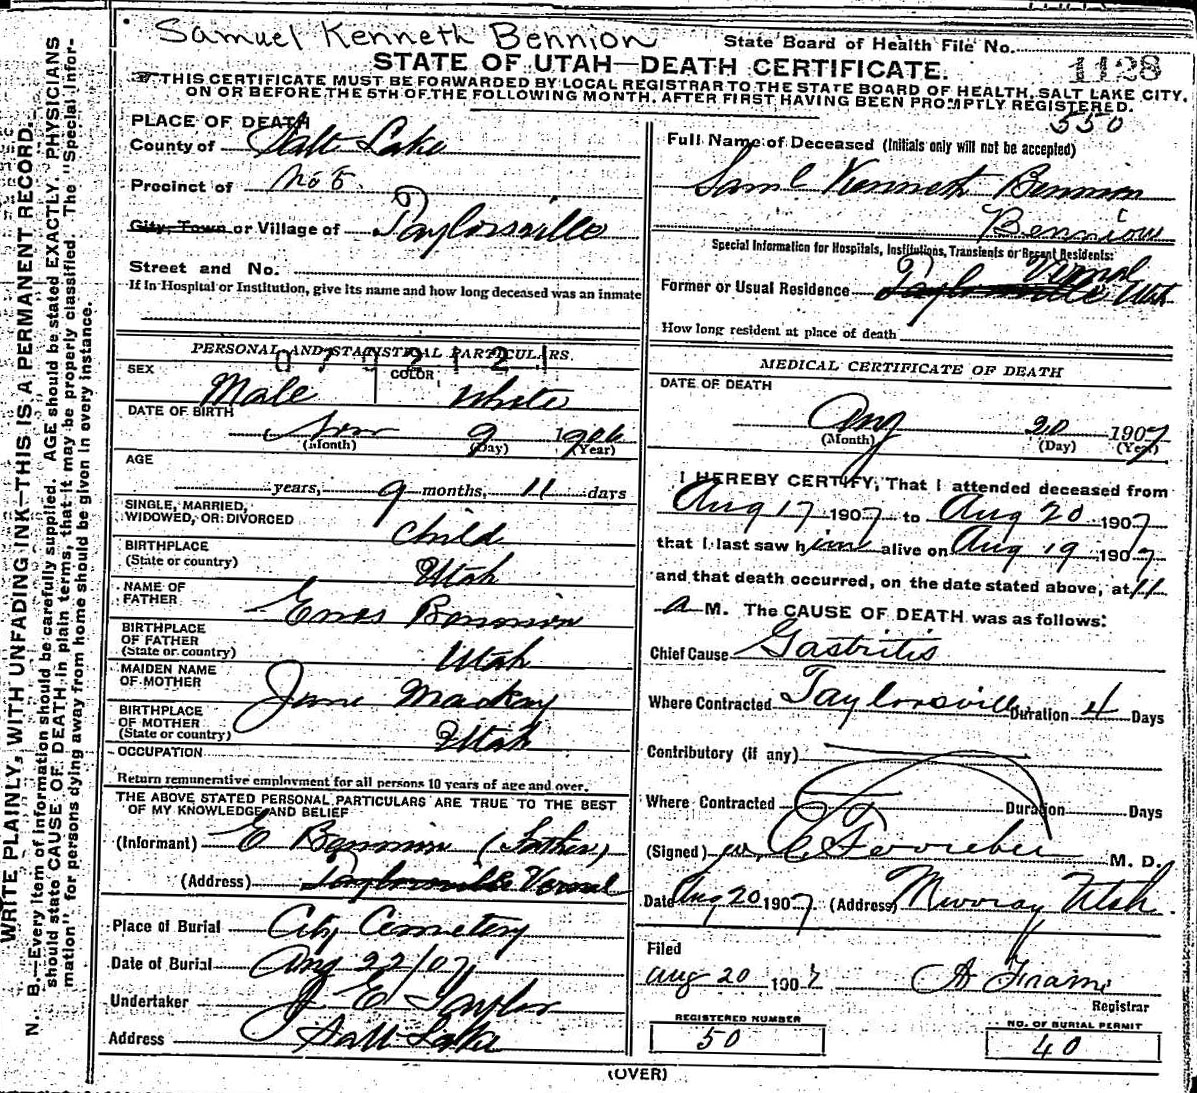 Samuel Kenneth Bennion
State Board of Health File No. 1128
STATE OF UTAH—DEATH CERTIFICATE.
THIS CERTIFICATE MUST BE FORWARDED BY LOCAL REGISTRAR TO THE STATE BOARD OF HEALTH, SALT LAKE CITY,
ON OR BEFORE THE 5TH OF THE FOLLOWING MONTH, AFTER FIRST HAVING BEEN PROMPTLY REGISTERED.
550
WRITE PLAINLY, WITH UNFADING INK—THIS IS A PERMANENT RECORD.
N. B.—Every item of information should be carefully supplied. AGE should be stated EXACTLY. PHYSICIANS
should state CAUSE OF DEATH in plain terms, that it may be properly classified. The "Special Infor-
mation" for persons dying away from home should be given in every instance.
PLACE OF DEATH
County of Salt Lake
Precinct of No 5.
City, Town or Village of Taylorsville
Street and No.
If in Hospital or Institution, give its name and how long deceased was an inmate
PERSONAL AND STATISTICAL PARTICULARS.
SEX Male
COLOR White
DATE OF BIRTH
Nov 9 1906
(Month) (Day) (Year)
AGE
years, 9 months, 11 days
SINGLE, MARRIED,
WIDOWED, OR DIVORCED Child
BIRTHPLACE
(State or country) Utah
NAME OF
FATHER Enos Bennion
BIRTHPLACE
OF FATHER
(State or country) Utah
MAIDEN NAME
OF MOTHER Jane Mackay
BIRTHPLACE
OF MOTHER
(State or country) Utah
OCCUPATION
Return remunerative employment for all persons 10 years of age and over.
THE ABOVE STATED PERSONAL PARTICULARS ARE TRUE TO THE BEST
OF MY KNOWLEDGE AND BELIEF
(Informant) E Bennion (Father)
(Address) Taylorsville Vernal
Place of Burial City Cemetery
Date of Burial Aug 22/07
Undertaker J E Taylor
Address Salt Lake
Full Name of Deceased (Initials only will not be accepted)
Saml Kenneth Bennion
Bennion
Special Information for Hospitals, Institutions, Transients or Recent Residents:
Vernal
Former or Usual Residence Taylorsville Utah
How long resident at place of death
MEDICAL CERTIFICATE OF DEATH
DATE OF DEATH
Aug 20 1907
(Month) (Day) (Year)
I HEREBY CERTIFY, That I attended deceased from
Aug 17 1907 to Aug 20 1907
that I last saw him alive on Aug 19 1907
and that death occurred, on the date stated above, at 11
a M. The CAUSE OF DEATH was as follows:
Chief Cause Gastritis
Where Contracted Taylorsville Duration 4 Days
Contributory (if any)
Where Contracted Duration Days
(Signed) M. D.
Date Aug 20 1907 (Address) Murray Utah.
Filed
Aug 20 1907
Registrar
REGISTERED NUMBER
50
NO. OF BURIAL PERMIT
40
(OVER)